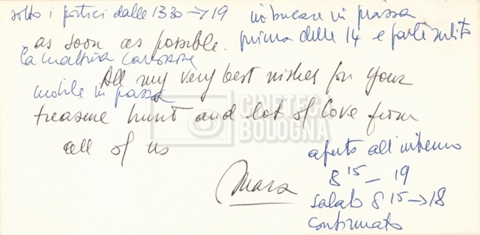 sotto i portici dalle 13 30 → 19
imbucare in piazza
prima delle 14 e parte subito
as soon as possible.
la mattina
All my very best wishes for your
mobile in piazza
treasure hunt and lot of love from
all of us
Mara
aperto all'interno
8 15 — 19
sabato 8 15 → 18
confirmato
CINETECA
BOLOGNA